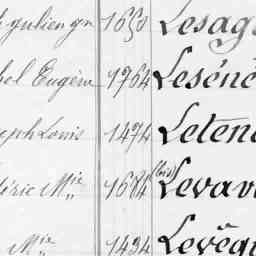 julien 1650 Lesag
Eugène 1764 Leséné
eph Louis 1474 Leten
éric Mie 1684 (bis) Levav
Mie 1494 Levêq